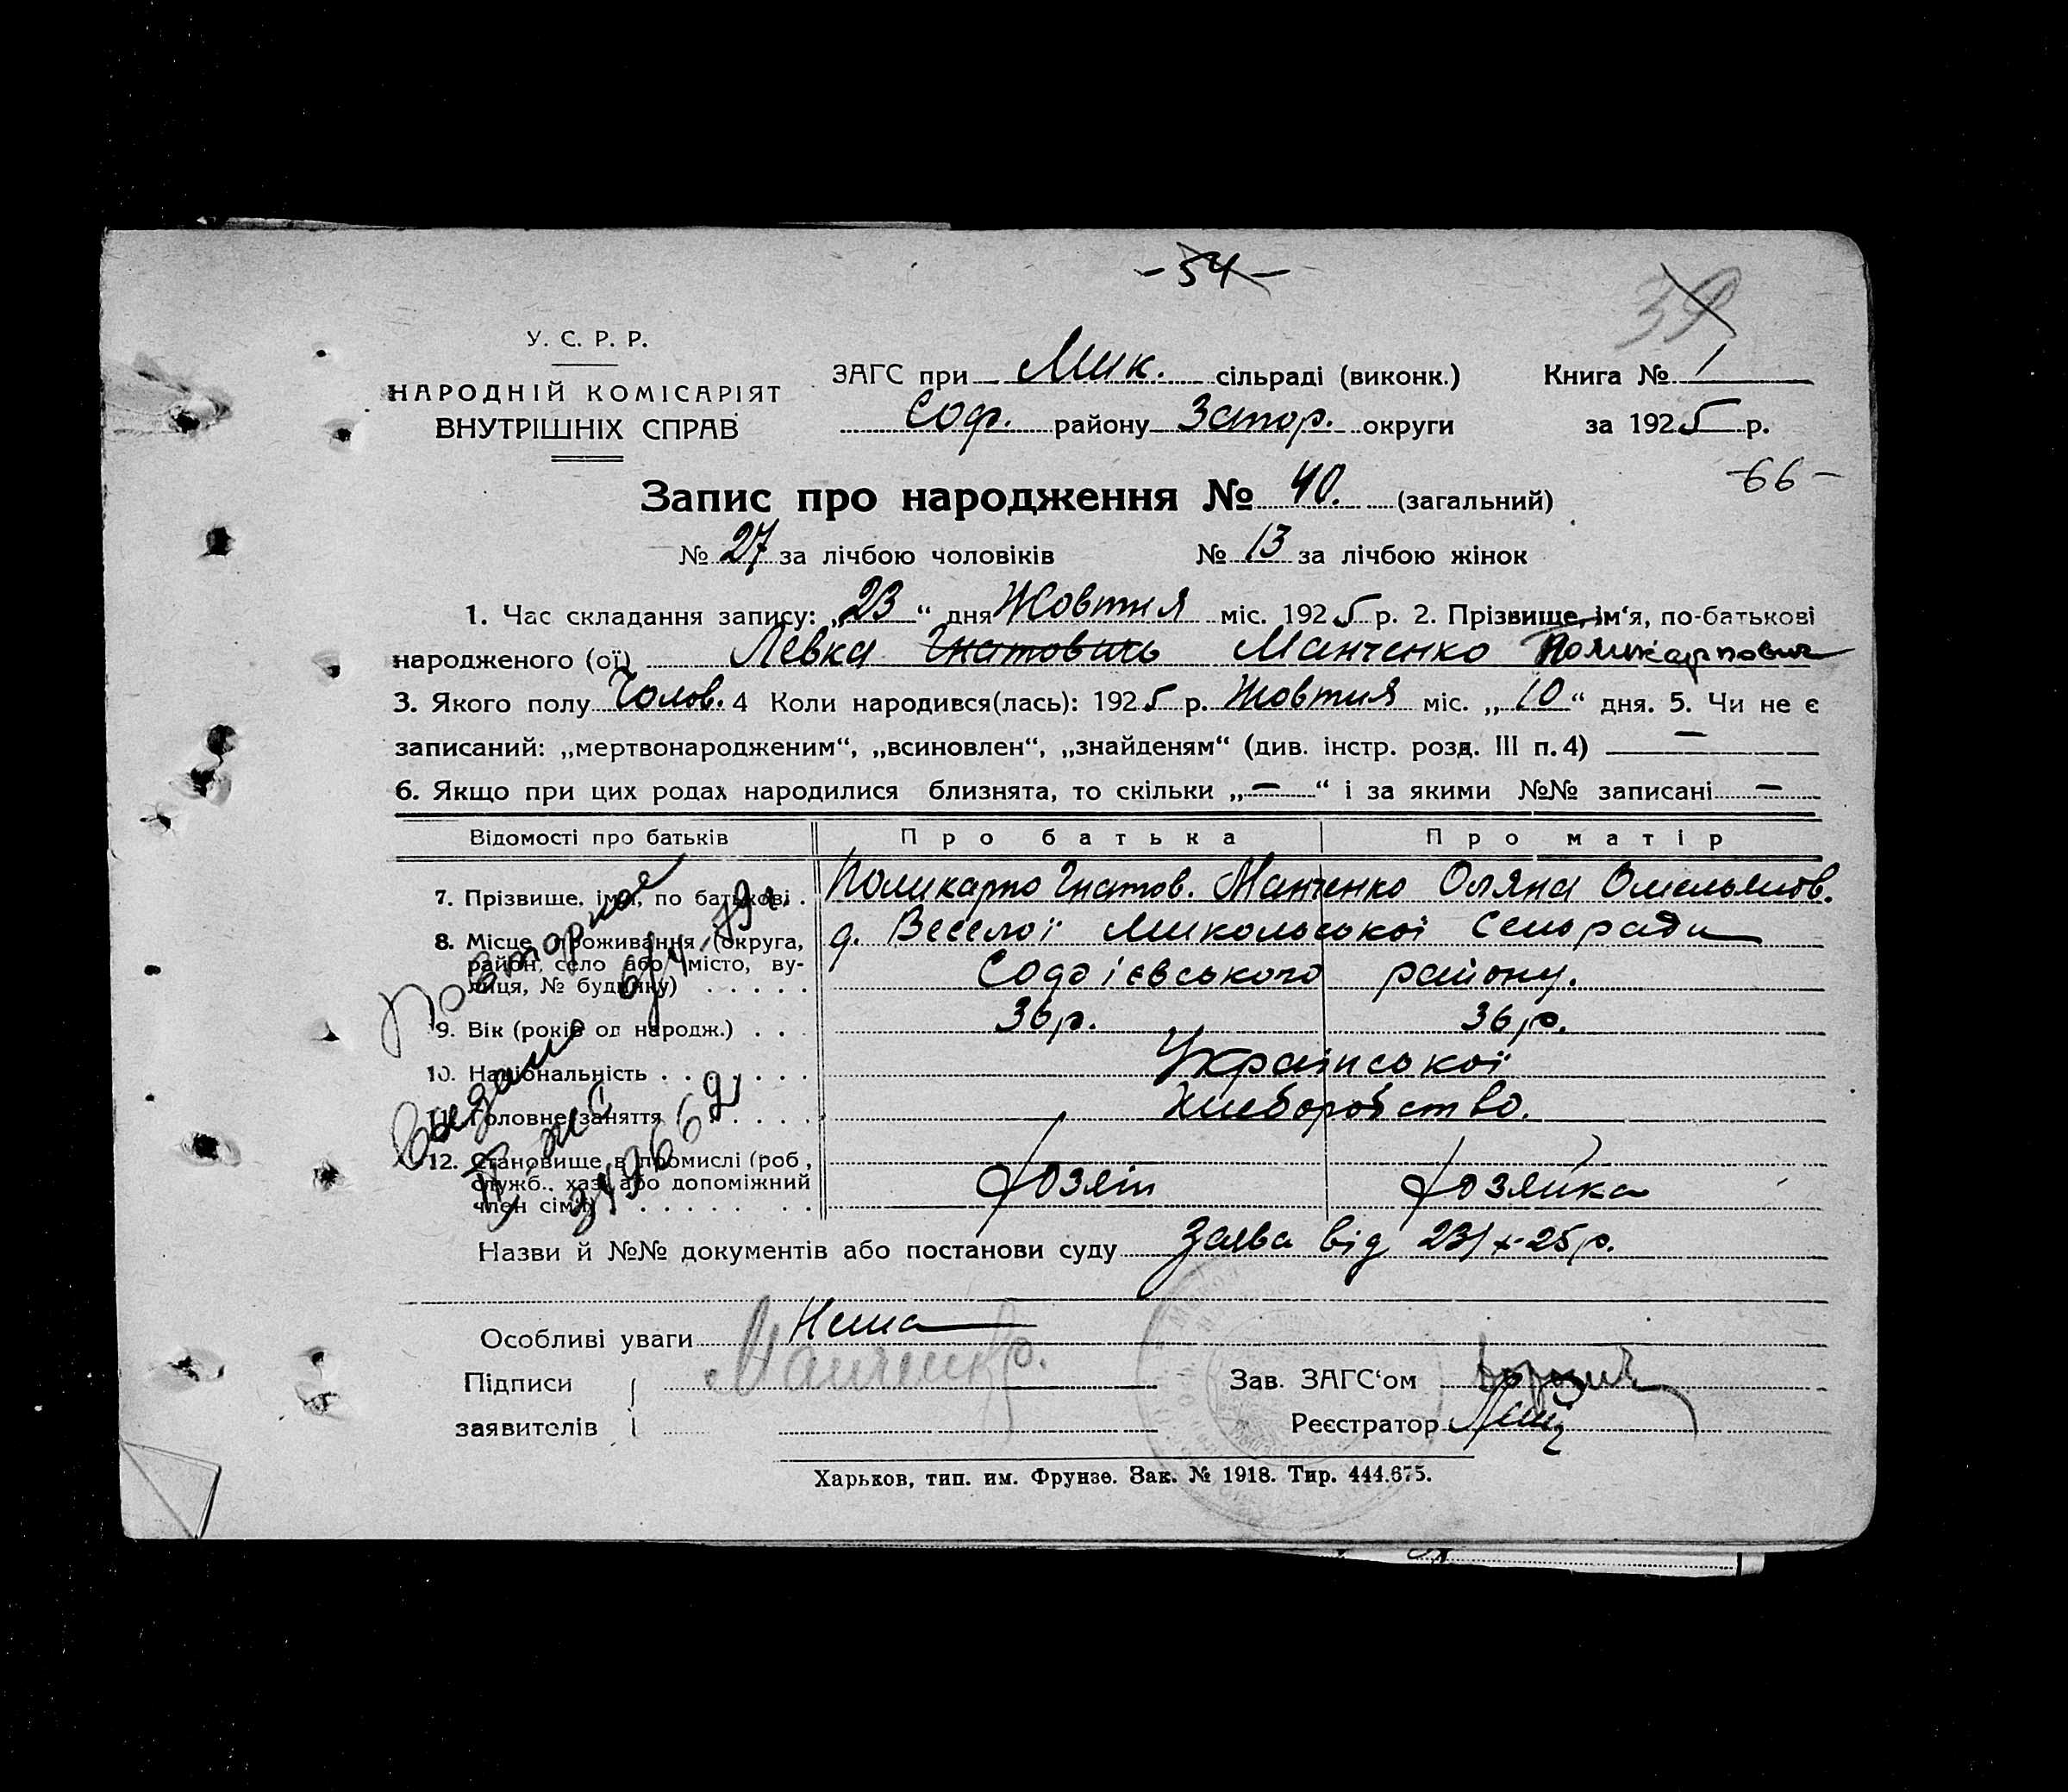 -54-
39
У. С. Р. Р.
НАРОДНІЙ КОМІСАРІЯТ
ВНУТРІШНІХ СПРАВ
ЗАГС при Мик. сільраді (виконк.)
Соф. району Запор. округи
Книга № 1
за 1925 р.
-66-
Запис про народження № 40. (загальний)
№ 27 за лічбою чоловіків № 13 за лічбою жінок
1. Час складання запису: „23“ дня Жовтня міс. 1925 р. 2. Прізвище, ім‘я, по-батькові
народженого (ої) Левка Гнатович Манченко Поликарпович
3. Якого полу Чолов. 4 Коли народився(лась): 1925 р. Жовтня міс. „10“ дня. 5. Чи не є
записаний: „мертвонародженим“, „всиновлен“, „знайденям“ (див. інстр. розд. III п. 4) —
6. Якщо при цих родах народилися близнята, то скільки „—“ і за якими №№ записані —
Відомості про батьків Про батька Про матір
7. Прізвище, ім'я, по батькові . Поликарп Гнатов. Манченко Оляна Омельянов.
8. Місце проживання (округа, район, село або місто, вулиця, № будинку) . . . . . д. Веселої Микольської Сельради
Софієвського району.
9. Вік (років од народж.) . . 36 р. 36 р.
10. Національність . . . . . . . Української
11. Головне заняття . . . . . . Хлеборобство.
12. Становище в промислі (роб., служб., хаз. або допоміжний член сім'ї) . . . . . . . . Хозяін Хозяйка
Повторное
Выдано
6/4-79г.
349669
Назви й №№ документів або постанови суду Заява від 23/x-25 р.
Особливі уваги Нема
Підписи
заявителів
Манченко.
Зав. ЗАГС‘ом
Реєстратор
Харьков, тип. им. Фрунзе. Зак. № 1918. Тир. 444.675.